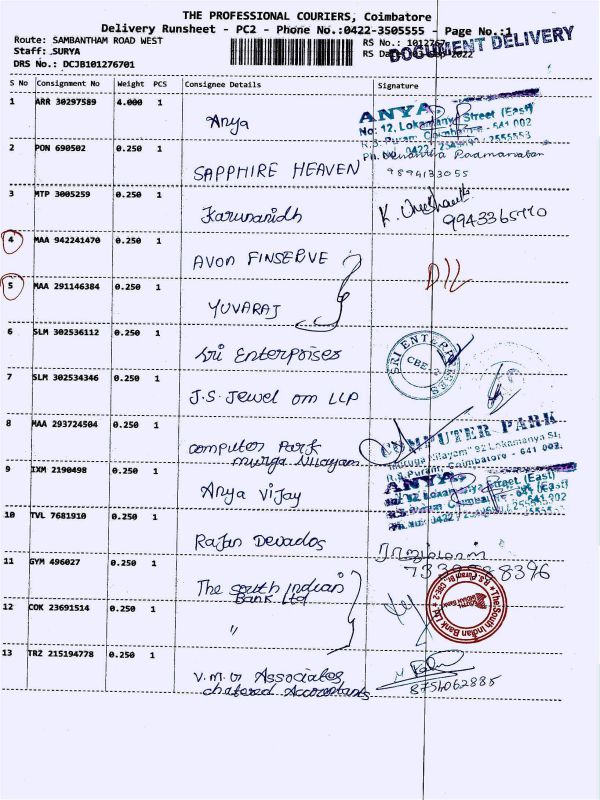 THE PROFESSIONAL COURIERS, Coimbatore
Delivery Runsheet - PC2 - Phone No.:0422-3505555 - Page No.:1
Route: SAMBANTHAM ROAD WEST
RS No.: 1012767
DOCUMENT DELIVERY
Staff: SURYA
2022
DRS No.: DCJB101276701
S No Consignment No Weight PCS Consignee Details Signature
1 ARR 30297589 4.000 1 Anya
ANYA
No: 12, Lokamanya Street (East)
R.S. Puram, Coimbatore - 641 002
2 PON 690502 0.250 1 SAPPHIRE HEAVEN
Padmanaban
9894133055
3 MTP 3005259 0.250 1 Karunanidh
9943365770
4 MAA 942241470 0.250 1 AVON FINSERVE
D/L
5 MAA 291146384 0.250 1 YUVARAJ
6 SLM 302536112 0.250 1 Sri Enterprises
SRI ENTERPRISES
CBE-2
7 SLM 302534346 0.250 1 J.S. Jewel om LLP
8 MAA 293724504 0.250 1 computer Park
murga Nilayam
COMPUTER PARK
"Muruga Nilayam" 92 Lokamanya St,
R.S. Puram, Coimbatore - 641 002.
9 IXM 2190498 0.250 1 Anya Vijay
ANYA
Lokamanya Street (East)
10 TVL 7681910 0.250 1 Rajan Devados
11 GYM 496027 0.250 1 The south Indian
Bank Ltd
The South Indian Bank Ltd
12 COK 23691514 0.250 1 "
13 TRZ 215194778 0.250 1 V.M.G Associates
chatered Accountants
8754062885